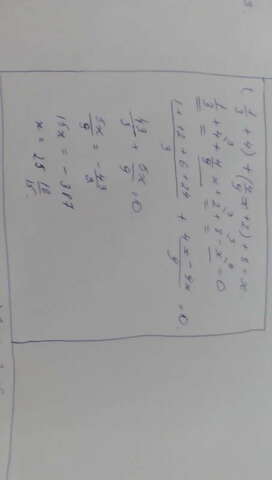 (1/3 + 4) + (4/9 x + 2) + 8 = x
1/3 + 4 + 4/9 x + 2 + 8 - x = 0
(1 + 12 + 6 + 24)/3 + (4x - 9x)/9 = 0.
43/3 + 5x/9 = 0.
5x/9 = -43/3
15x = -387
x = 25 12/15.